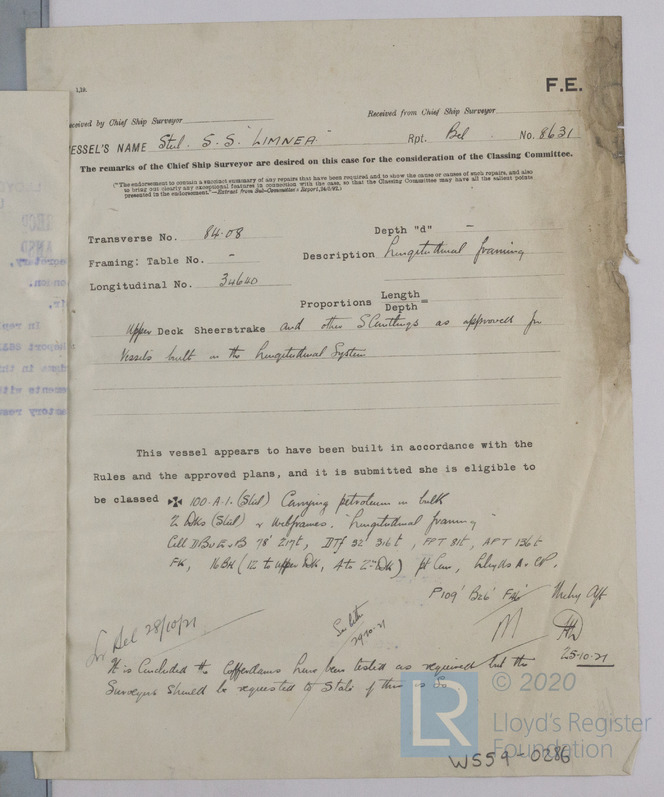 F.E.
Received by Chief Ship Surveyor
Received from Chief Ship Surveyor
ESSEL'S NAME Steel S.S. "LIMNEA" Rpt. Bel. No. 8631
The remarks of the Chief Ship Surveyor are desired on this case for the consideration of the Classing Committee.
("The endorsement to contain a succinct summary of any repairs that have been required and to show the cause or causes of such repairs, and also
to bring out clearly any exceptional features in connection with the case, so that the Classing Committee may have all the salient points
presented in the endorsement."—Extract from Sub-Committee's Report,
Transverse No. 84.08
Depth "d" -
Framing: Table No. -
Description Longitudinal framing
Longitudinal No. 34640
Proportions Length
Depth =
Upper Deck Sheerstrake and other Scantlings as approved for
Vessels built on the Longitudinal System
This vessel appears to have been built in accordance with the
Rules and the approved plans, and it is submitted she is eligible to
be classed ✠ 100.A.1. (Steel) Carrying petroleum in bulk
2 Dks (Steel) & Webframes. "Longitudinal framing"
Cell D B 78' 217t, DTf 32' 316t, FPT 81t, APT 136t
FK, 16BH (12 to upper Dk, 4 to 2nd Dk) pt Cem, Lloyds A & CP.
P109' B26' F46' Mchy Aft
Bel 28/10/21
See letter
29.10.21
25.10.21
It is concluded the Cofferdams have been tested as required but the
Surveyors should be requested to State if this is so
© 2020
LR
Lloyd's Register
Foundation
WS59-0286